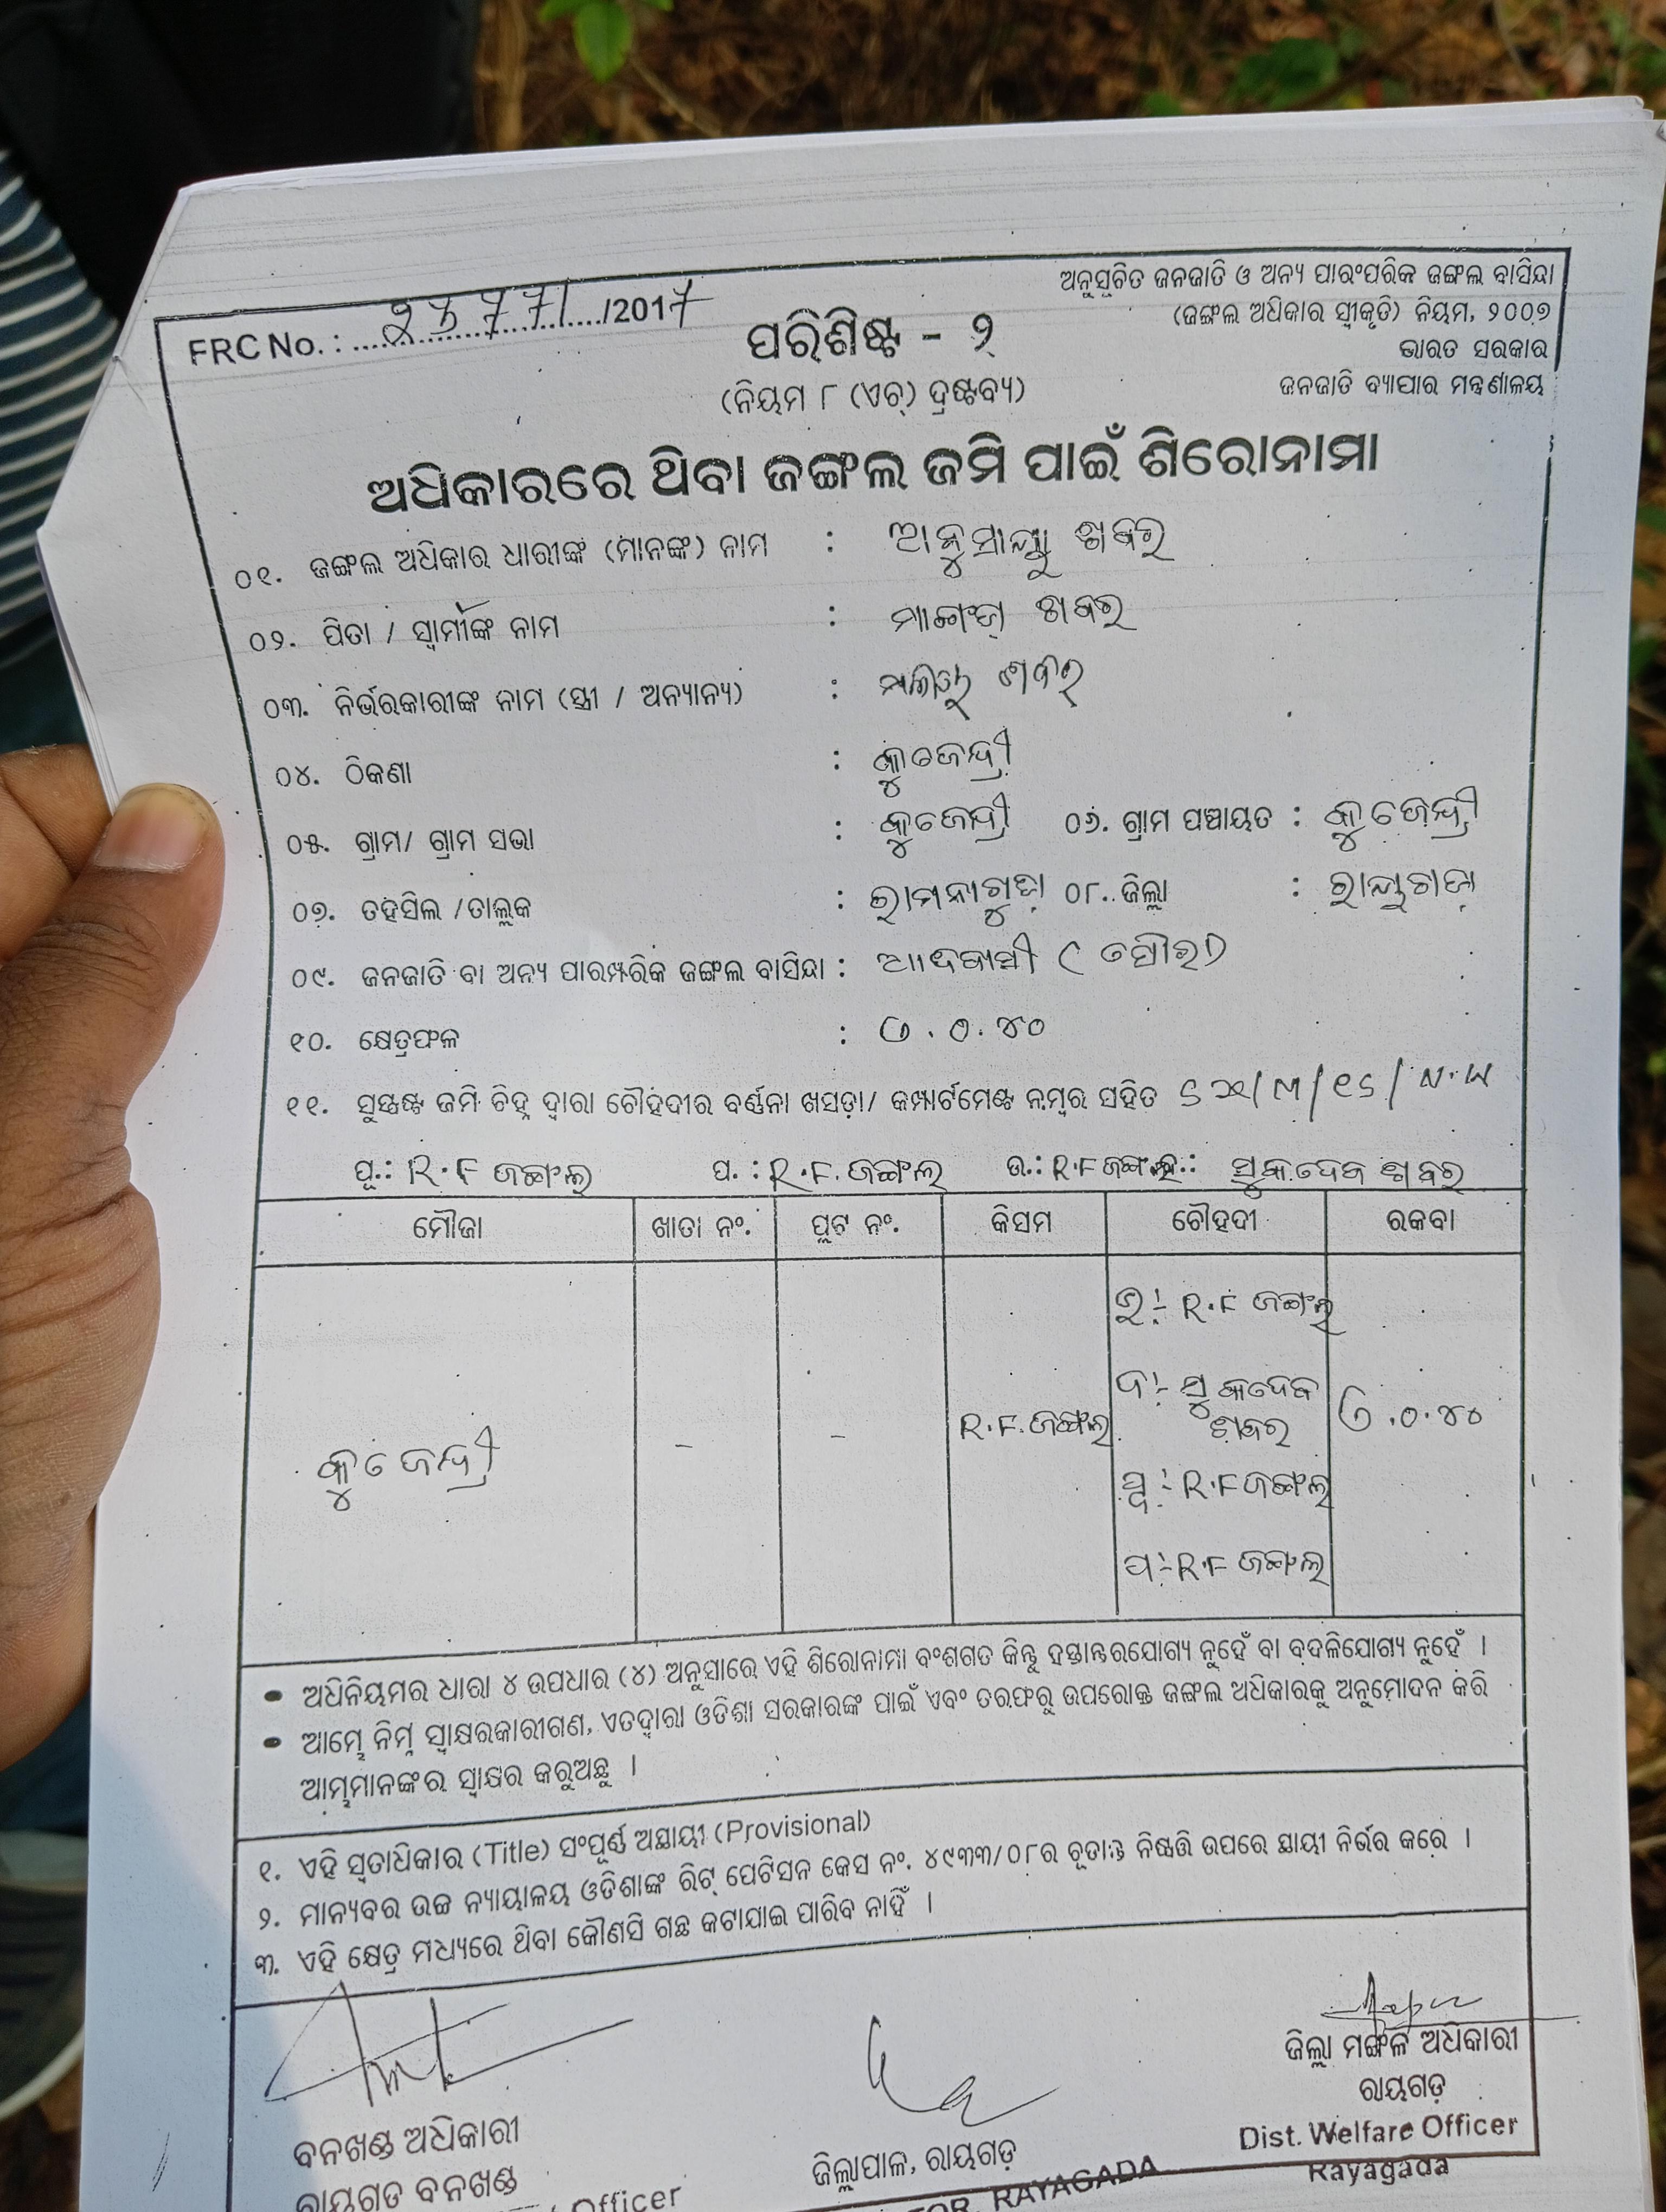 ଅନୁସୂଚିତ ଜନଜାତି ଓ ଅନ୍ୟ ପାରଂପରିକ ଜଙ୍ଗଲ ବାସିନ୍ଦା
(ଜଙ୍ଗଲ ଅଧିକାର ସ୍ୱୀକୃତି) ନିୟମ, ୨୦୦୭
ଭାରତ ସରକାର
ଜନଜାତି ବ୍ୟାପାର ମନ୍ତ୍ରଣାଳୟ
FRC No. : /2017
ପରିଶିଷ୍ଟ - ୨
(ନିୟମ ୮ (ଏଚ୍) ଦ୍ରଷ୍ଟବ୍ୟ)
ଅଧିକାରରେ ଥିବା ଜଙ୍ଗଲ ଜମି ପାଇଁ ଶିରୋନାମା
୦୧. ଜଙ୍ଗଲ ଅଧିକାର ଧାରୀଙ୍କ (ମାନଙ୍କ) ନାମ : ଶବର
୦୨. ପିତା / ସ୍ୱାମୀଙ୍କ ନାମ : ଶବର
୦୩. ନିର୍ଭରକାରୀଙ୍କ ନାମ (ସ୍ତ୍ରୀ / ଅନ୍ୟାନ୍ୟ) : ଶବର
୦୪. ଠିକଣା : କୁଜେନ୍ଦ୍ରୀ
୦୫. ଗ୍ରାମ/ ଗ୍ରାମ ସଭା : କୁଜେନ୍ଦ୍ରୀ ୦୬. ଗ୍ରାମ ପଞ୍ଚାୟତ : କୁଜେନ୍ଦ୍ରୀ
୦୭. ତହସିଲ /ତାଲୁକ : ରାମନାଗୁଡ଼ା ୦୮. ଜିଲ୍ଲା : ରାୟଗଡ଼ା
୦୯. ଜନଜାତି ବା ଅନ୍ୟ ପାରମ୍ପରିକ ଜଙ୍ଗଲ ବାସିନ୍ଦା : ଆଦିବାସୀ (ସୌରା)
୧୦. କ୍ଷେତ୍ରଫଳ : ୦.୪୦
୧୧. ସୁସ୍ପଷ୍ଟ ଜମି ଚିହ୍ନ ଦ୍ୱାରା ଚୌହଦୀର ବର୍ଣ୍ଣନା ଖସଡ଼ା/ କମ୍ପାର୍ଟମେଣ୍ଟ ନମ୍ବର ସହିତ
ପୂ.: R.F ଜଙ୍ଗଲ ପ. : R.F. ଜଙ୍ଗଲ ଉ.: R.F ଜଙ୍ଗଲ ଦ.: ସୁକଦେବ ଶବର
ମୌଜା ଖାତା ନଂ. ପ୍ଲଟ ନଂ. କିସମ ଚୌହଦୀ ରକବା
ଉ:- R.F ଜଙ୍ଗଲ
ଦ:- ସୁକଦେବ
କୁଜେନ୍ଦ୍ରୀ - - R.F. ଜଙ୍ଗଲ ଶବର ୦.୪୦
ପୂ:- R.F ଜଙ୍ଗଲ
ପ:- R.F ଜଙ୍ଗଲ
• ଅଧିନିୟମର ଧାରା ୪ ଉପଧାର (୪) ଅନୁସାରେ ଏହି ଶିରୋନାମା ବଂଶଗତ କିନ୍ତୁ ହସ୍ତାନ୍ତରଯୋଗ୍ୟ ନୁହେଁ ବା ବଦଳିଯୋଗ୍ୟ ନୁହେଁ ।
• ଆମ୍ଭେ ନିମ୍ନ ସ୍ୱାକ୍ଷରକାରୀଗଣ, ଏତଦ୍ୱାରା ଓଡିଶା ସରକାରଙ୍କ ପାଇଁ ଏବଂ ତରଫରୁ ଉପରୋକ୍ତ ଜଙ୍ଗଲ ଅଧିକାରକୁ ଅନୁମୋଦନ କରି
ଆମ୍ଭମାନଙ୍କର ସ୍ୱାକ୍ଷର କରୁଅଛୁ ।
୧. ଏହି ସ୍ୱତାଧିକାର (Title) ସଂପୂର୍ଣ୍ଣ ଅସ୍ଥାୟୀ (Provisional)
୨. ମାନ୍ୟବର ଉଚ୍ଚ ନ୍ୟାୟାଳୟ ଓଡିଶାଙ୍କ ରିଟ୍ ପେଟିସନ କେସ ନଂ. ୪୯୩୩/୦୮ର ଚୂଡାନ୍ତ ନିଷ୍ପତ୍ତି ଉପରେ ସ୍ଥାୟୀ ନିର୍ଭର କରେ ।
୩. ଏହି କ୍ଷେତ୍ର ମଧ୍ୟରେ ଥିବା କୌଣସି ଗଛ କଟାଯାଇ ପାରିବ ନାହିଁ ।
ଜିଲ୍ଲା ମଙ୍ଗଳ ଅଧିକାରୀ
ରାୟଗଡ଼
Dist. Welfare Officer
Rayagada
ବନଖଣ୍ଡ ଅଧିକାରୀ
ରାୟଗଡ ବନଖଣ୍ଡ
Officer
ଜିଲ୍ଲାପାଳ, ରାୟଗଡ଼
RAYAGADA